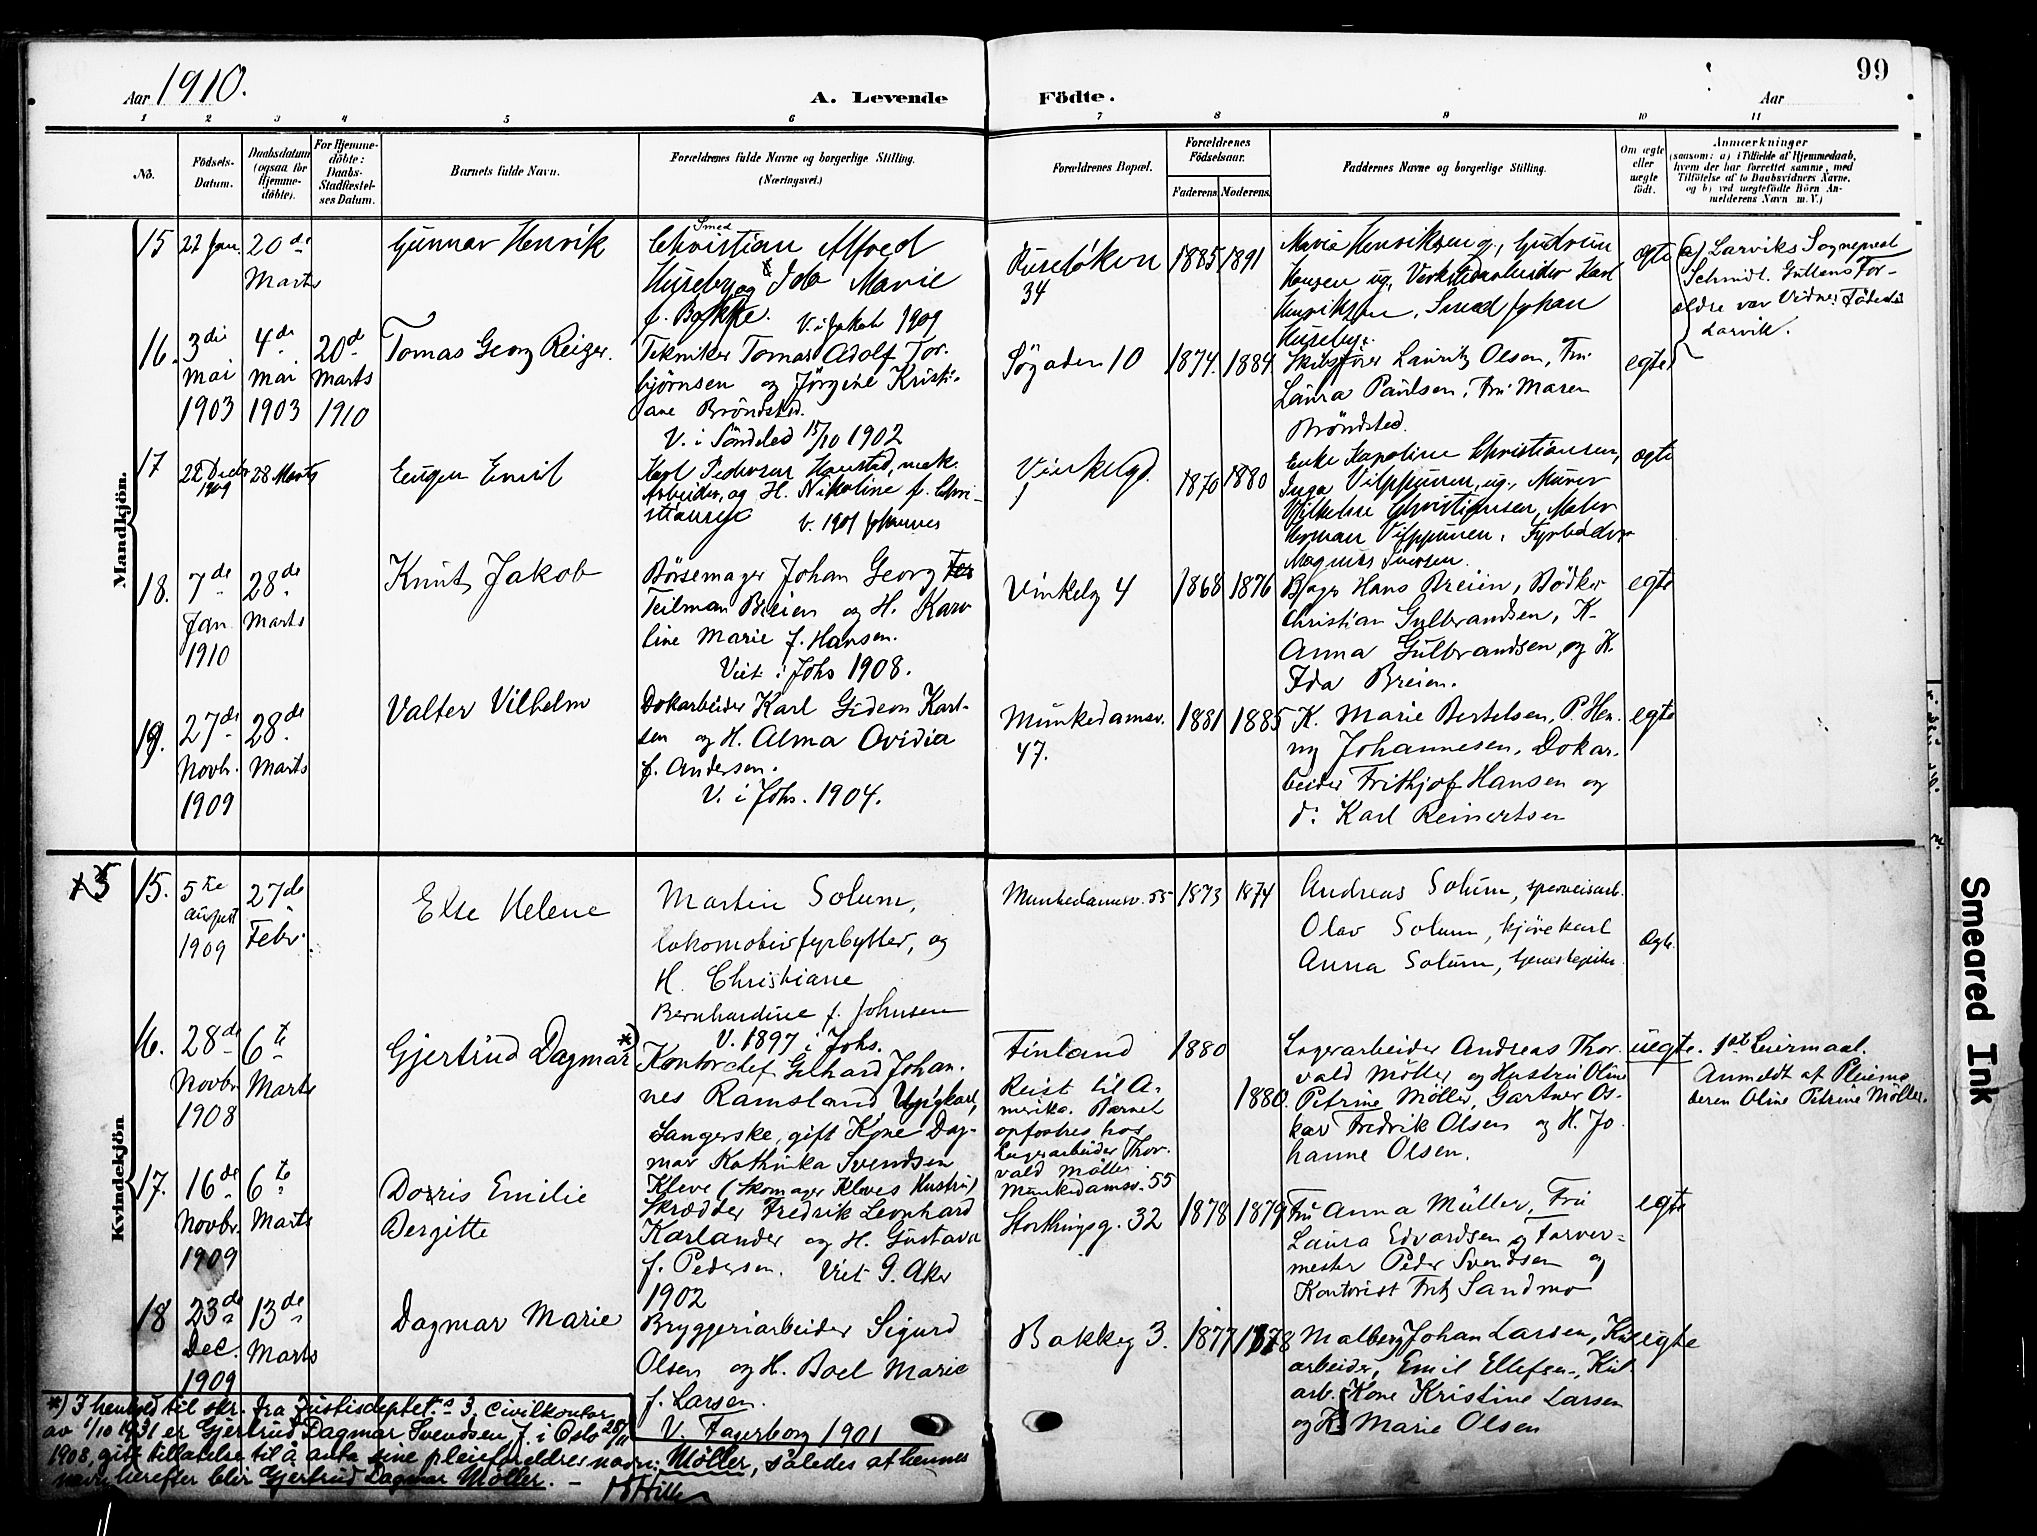 99
Aar 1910.
A. Levende Födte.
Aar
1 2 3 4 5 6 7 8 9 10 11
No.
Födsels-Datum.
Daabsdatum (ogsaa for Hjemme-döbte).
For Hjemme-döbte: Daabs-Stadfæstel-ses Datum.
Barnets fulde Navn.
Forældrenes fulde Navne og borgerlige Stilling.
(Næringsvei.)
Forældrenes Bopæl.
Forældrenes Födselsaar.
Faderens. Moderens.
Faddernes Navne og borgerlige Stilling.
Om ægte eller uægte födt.
Anmærkninger
(saasom: a) i Tilfælde af Hjemmedaab,
hvem der har forrettet samme, med
Tilföielse af to Daabsvidners Navne,
og b) ved uegtefödte Börn An-
melderens Navn m. V.)
Mandkjön.
15 22 Jan. 20de Marts
Gunnar Henrik
Smed
Christian Alfred
Huseby og Ida Marie
f. Bakke.
V. i Jakob 1909
Ruseløkvn 34
1885 1891
Marie Henriksen ug., Gudrun
Hansen ug., Verkstedarbeider Karl
Henriksen, Smed Johan
Huseby.
ægte
(a) Larviks Sogneprest
Schmidt. Guttens For-
ældre var Vidner. Fødested
Larvik.
16. 3die Mai 1903 4de Mai 1903 20de Marts 1910
Tomas Georg Reizer.
Tekniker Tomas Adolf Tor-
bjørnsen og Jörgine Kristi-
ane Bröndsted.
V. i Söndeled 15/10 1902
Søgaden 10
1874. 1884
Skibsfører Lauritz Olsen, Fru
Laura Paulsen, Fru Maren
Bröndsted.
egte
17 22 Decbr 1909 28 Marts
Eugen Emil
Karl Pedersen Haustad, mek.
Arbeider, og H. Nikoline f. Chri-
stiansen
V. 1901 Johannes
Vinkelgd. 1
1870 1880
Enke Karoline Christiansen,
Inga Vilppunen, ug., Murer
Vilhelm Christiansen, Maler
Herman Vilppunen, Fyrbøder
Magnus Iversen.
ægte
18. 7de Jan 1910 28de Marts
Knut Jakob
Børsemager Johan Georg
Teilman Breien og H. Karo
line Marie f. Hansen.
Viet i Johs 1908.
Vinkelg 4
1868 1876
Bager Hans Breien, Bödker
Christian Gulbrandsen, K.
Anna Gulbrandsen, og K.
Ida Breien.
egte
19. 27de Novbr. 1909 28de Marts
Valter Vilhelm
Dokarbeider Karl Gideon Karl-
sen og H. Alma Ovidia
f. Andersen.
V. i Johs. 1904.
Munkedamsv. 47.
1881 1885
K. Marie Bertelsen, P. Hen-
ny Johannesen, Dokar-
beider Frithjof Hansen og
d: Karl Reinertsen
egte
Kvindekjön
15. 5te august 1909 27de Febr.
Else Helene
Martin Solum,
lokomotivfyrbytter, og
H. Christiane
Bernhardine f. Johnsen
V. 1897 i Johs.
Munkedamsv. 55
1873 1874
Andreas Solum, sporveisarb.
Olav Solum, kjörekarl
Anna Solum,
Ægte.
16. 28de Novbr 1908 6te Marts
Gjertrud Dagmar *)
Kontorchef Gerhard Johan-
nes Ramsland Ungkarl,
Sangerske, gift Kone Dag-
mar Kathinka Svendsen
Kleve (Skomager Kleves Hustru)
Finland
Reist til A-
merika. Barnet
opfostres hos
Lagerarbeider Thor-
vald Møller
Munkedamsv. 55
1880 1880.
Lagerarbeider Andreas Thor-
vald Möller og Hustru Oline
Petrine Möller, Gartner Os-
kar Fredrik Olsen og H. Jo
hanne Olsen.
uegte. 1st Leiermaal.
Anmeldt af Pleiemo
deren Oline Petrine Möller.
17. 16de Novbr. 1909 6te Marts
Dorris Emilie
Bergitte
Skrædder Fredrik Leonhard
Karlander og H. Gustava
f. Pedersen. Viet G. Aker
1902
Storthingsg. 32
1878 1879
Fru Anna Müller, Fru
Laura Edvardsen og Farver-
mester Peder Svendsen og
Kontorist Fritz Sandmo
egte
18 23de Dec. 1909 13de Marts
Dagmar Marie
Bryggeriarbeider Sigurd
Olsen og H. Boel Marie
f. Larsen.
V. Fagerborg 1901
Bakkeg 3.
1877 1878
Malersv Johan Larsen,
arbeider, Emil Ellefsen, Kul
arb. Kone Kristine Larsen
og K. Marie Olsen
egte
*) I henhold til skr. fra Justisdeptets 3. civilkontor
av 1/10 1931 er Gjertrud Dagmar Svendsen, f. i Oslo 28/11
1908, gitt tillatelse til å anta sine pleieforeldres navn: Möller, således at hennes
navn herefter blir Gjertrud Dagmar Möller. –
Smeared Ink